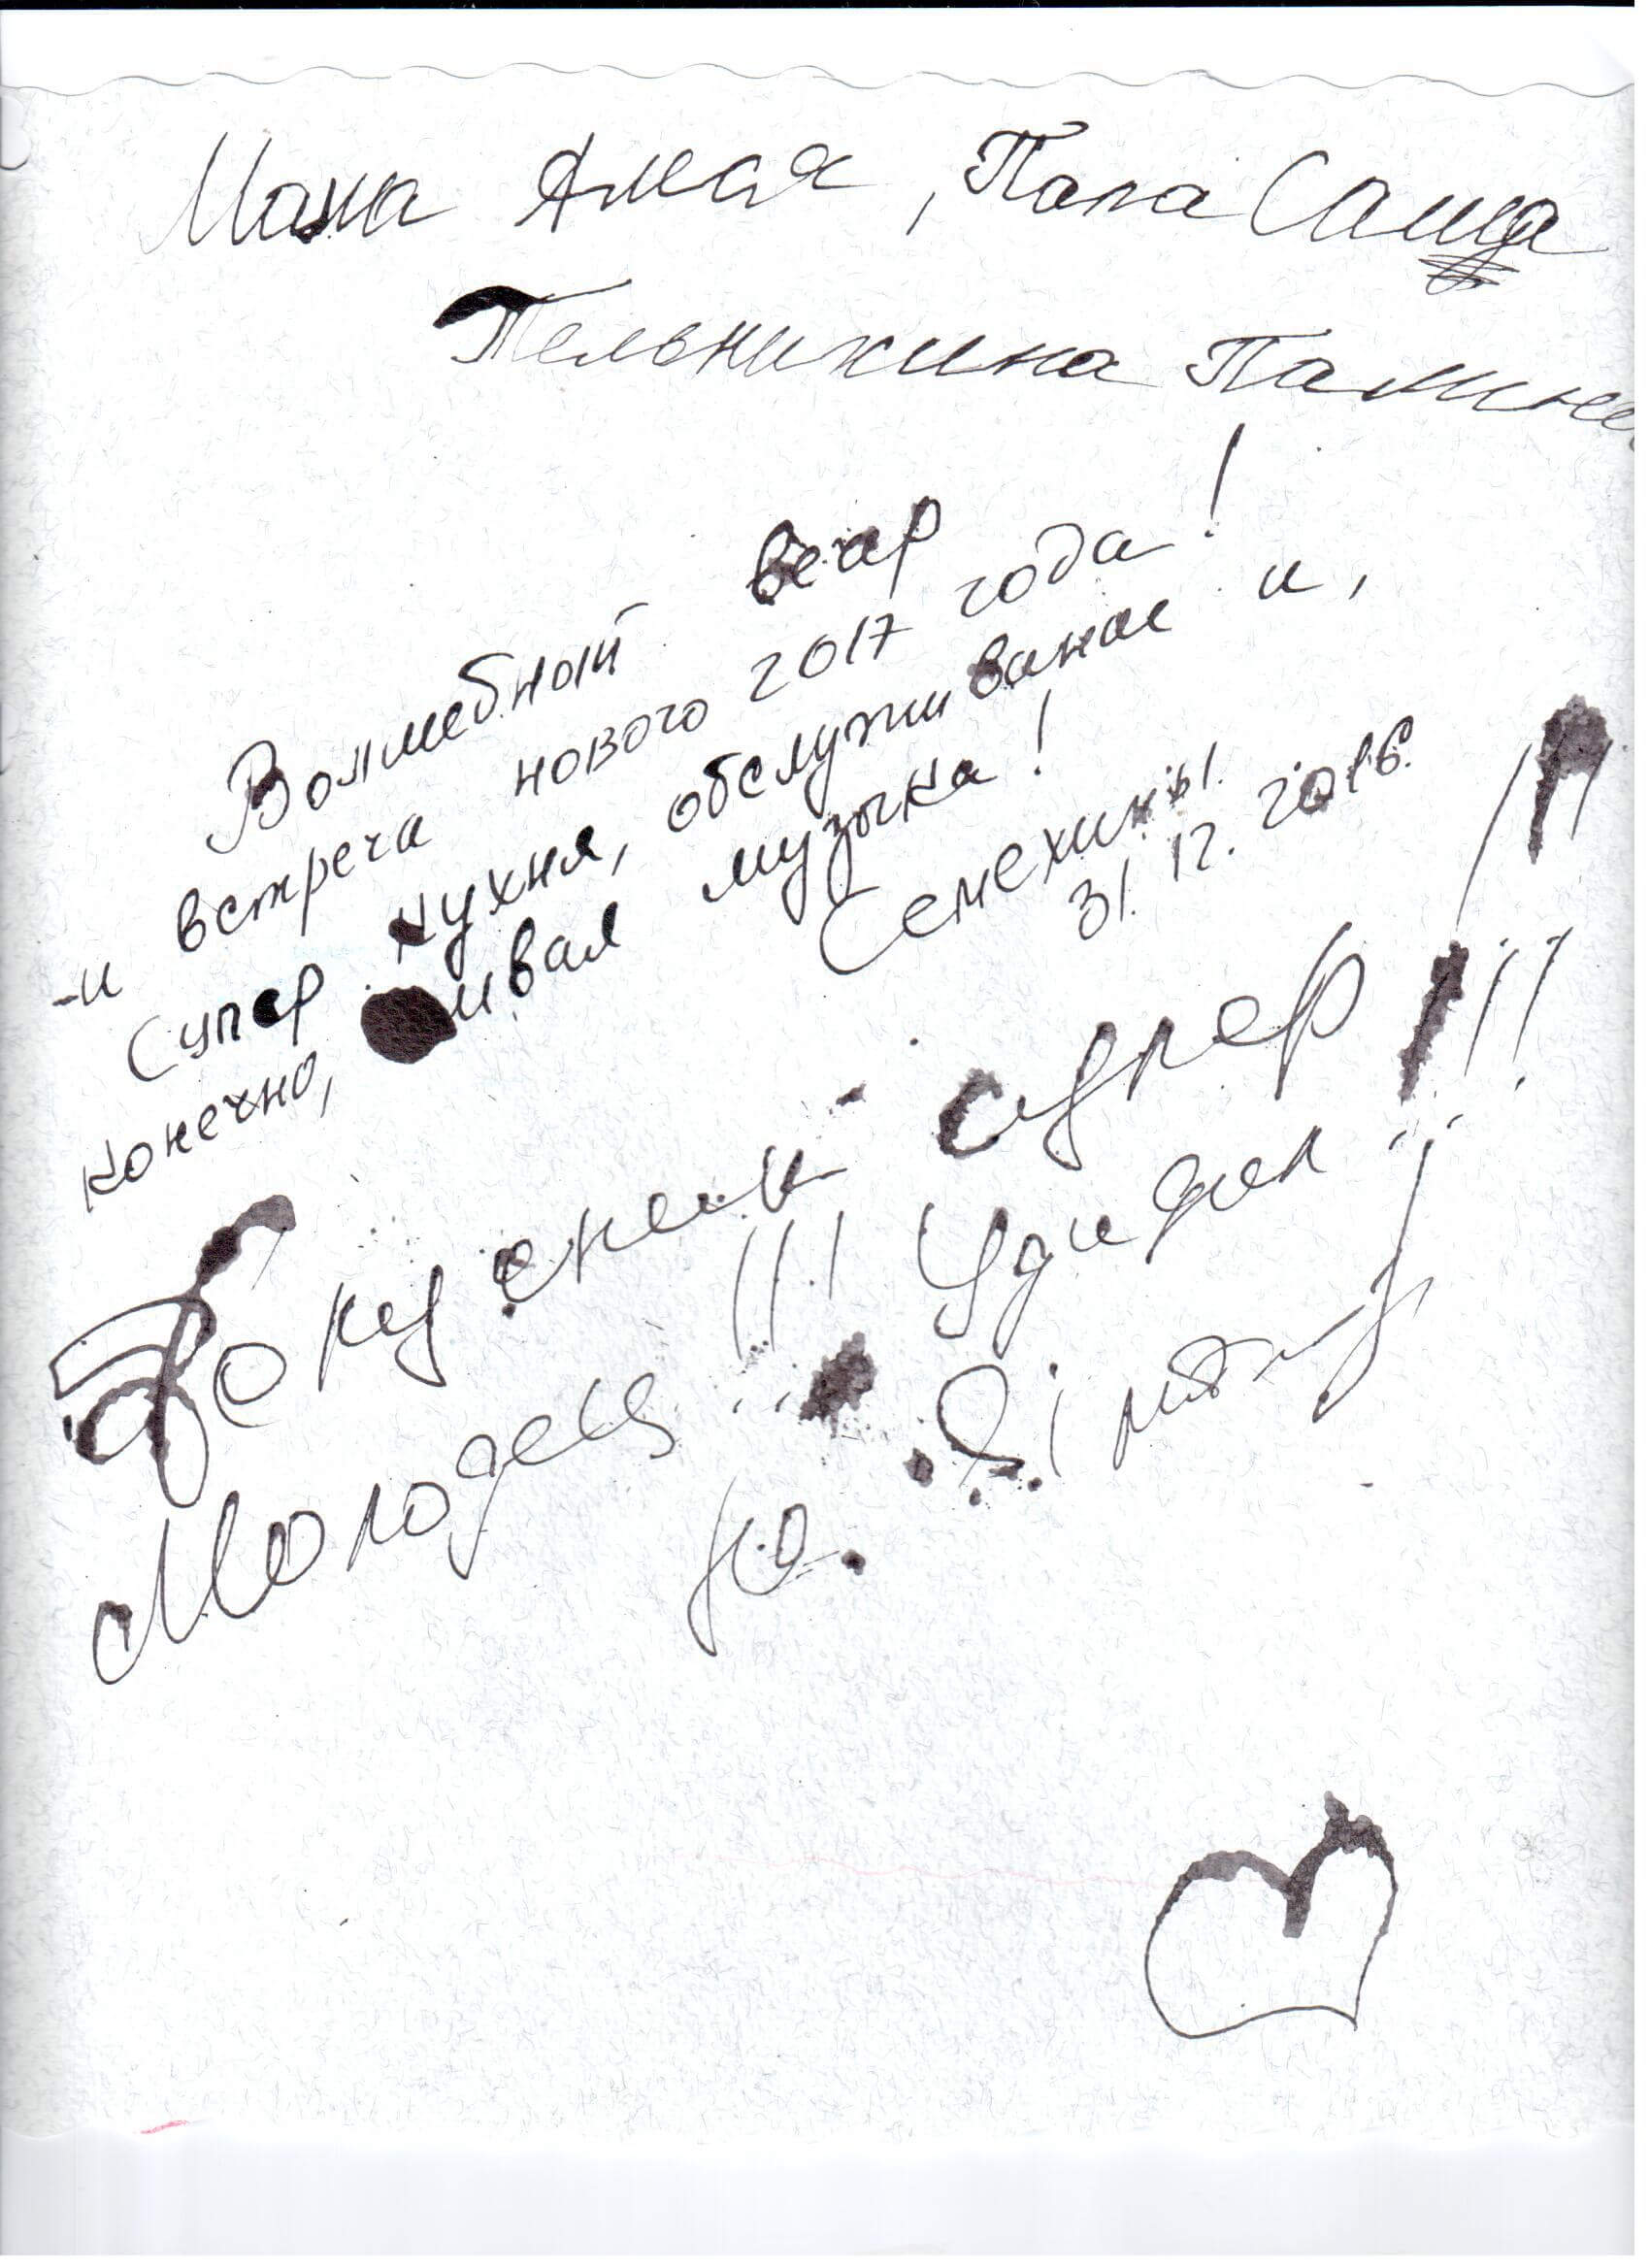 Мама Амая, Папа Саша
Пельникина Полине
Волшебный вечер
-и встреча нового 2017 года!
Супер кухня, обслуживание и,
конечно, живая музыка!
Семехины.
31.12.2016.
Фокусник супер !!!
Молодец !!! Удивил !!!